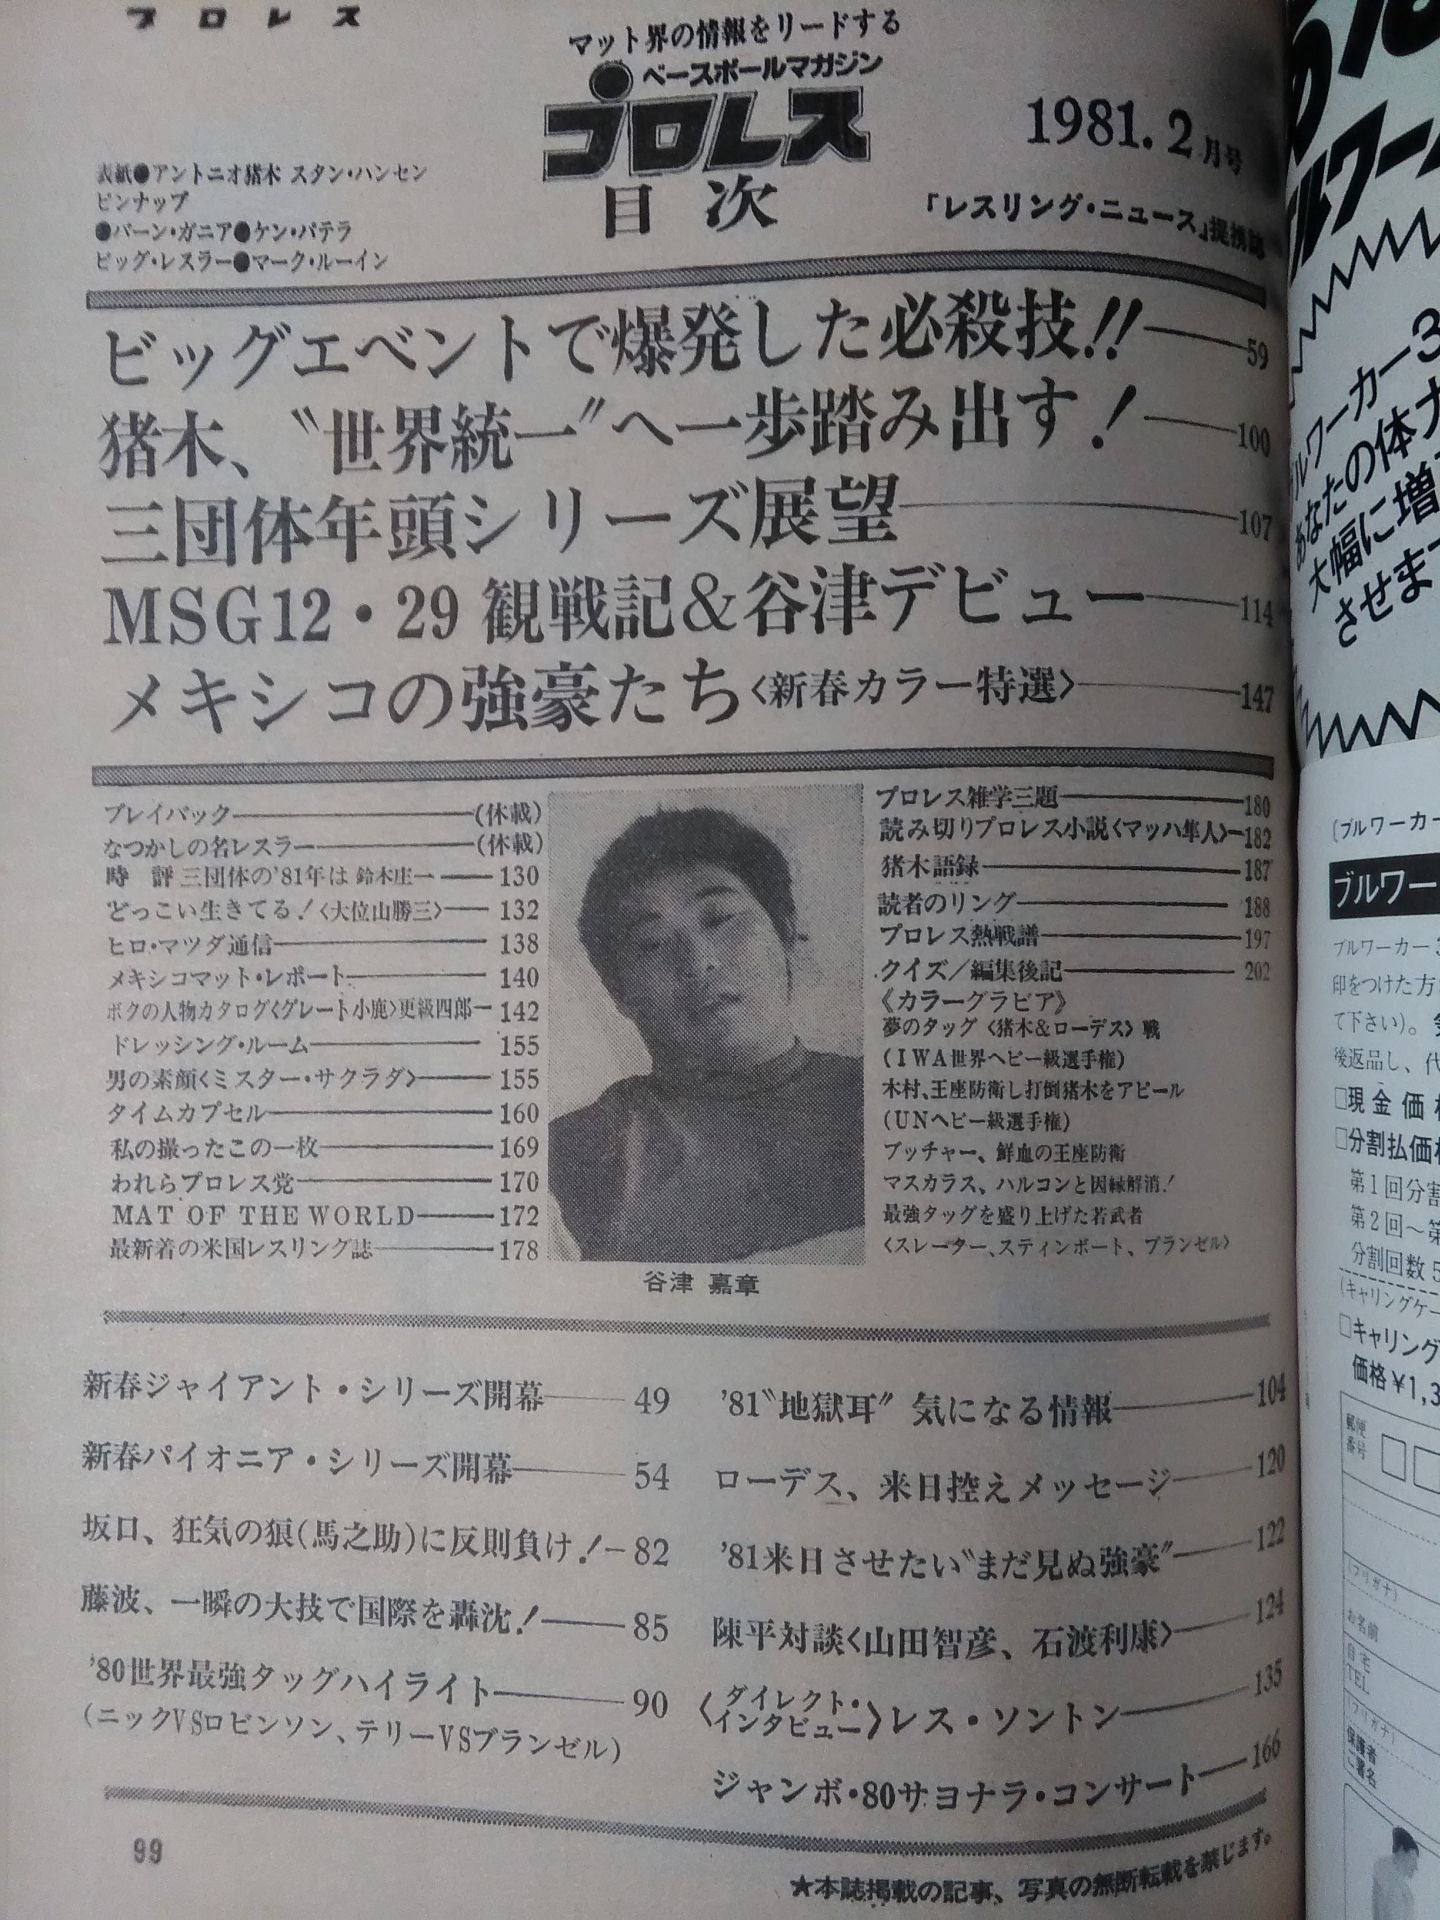 プロレス
マット界の情報をリードする
ベースボールマガジン
プロレス
目次
1981.2月号
「レスリング・ニュース」提携誌
表紙●アントニオ猪木 スタン・ハンセン
ピンナップ
●バーン・ガニア●ケン・パテラ
ビッグ・レスラー●マーク・ルーイン
ビッグエベントで爆発した必殺技!!―59
猪木、〝世界統一〟へ一歩踏み出す!―100
三団体年頭シリーズ展望―107
MSG12・29 観戦記&谷津デビュー―114
メキシコの強豪たち〈新春カラー特選〉―147
プレイバック―(休載)
なつかしの名レスラー―(休載)
時 評 三団体の'81年は 鈴木庄一―130
どっこい生きてる!〈大位山勝三〉―132
ヒロ・マツダ通信―138
メキシコマット・レポート―140
ボクの人物カタログ〈グレート小鹿〉更級四郎―142
ドレッシング・ルーム―155
男の素顔〈ミスター・サクラダ〉―155
タイムカプセル―160
私の撮ったこの一枚―169
われらプロレス党―170
MAT OF THE WORLD―172
最新着の米国レスリング誌―178
谷津 嘉章
プロレス雑学三題―180
読み切りプロレス小説〈マッハ隼人〉―182
猪木語録―187
読者のリング―188
プロレス熱戦譜―197
クイズ/編集後記―202
《カラーグラビア》
夢のタッグ〈猪木&ローデス〉戦
(IWA世界ヘビー級選手権)
木村、王座防衛し打倒猪木をアピール
(UNヘビー級選手権)
ブッチャー、鮮血の王座防衛
マスカラス、ハルコンと因縁解消!
最強タッグを盛り上げた若武者
〈スレーター、スティンボート、ブランゼル〉
新春ジャイアント・シリーズ開幕―49
新春パイオニア・シリーズ開幕―54
坂口、狂気の狼(馬之助)に反則負け!―82
藤波、一瞬の大技で国際を轟沈!―85
'80世界最強タッグハイライト―90
(ニックVSロビンソン、テリーVSブランゼル)
'81〝地獄耳〟気になる情報―104
ローデス、来日控えメッセージ―120
'81来日させたい〝まだ見ぬ強豪〟―122
陳平対談〈山田智彦、石渡利康〉―124
〈ダイレクト・インタビュー〉レス・ソントン―135
ジャンボ・80サヨナラ・コンサート―166
99
★本誌掲載の記事、写真の無断転載を禁じます。
ルワー
ルワーカー3
あなたの体力
大幅に増
させます
(ブルワーカー
ブルワー
ブルワーカー3
印をつけた方
て下さい)。
後返品し、代
□現金価格
□分割払価格
第1回分割
第2回〜第
分割回数5
(キャリングケー
□キャリング
価格¥1,3
郵便番号
(フリガナ)
お名前
自宅TEL
(フリガナ)
保護者ご署名